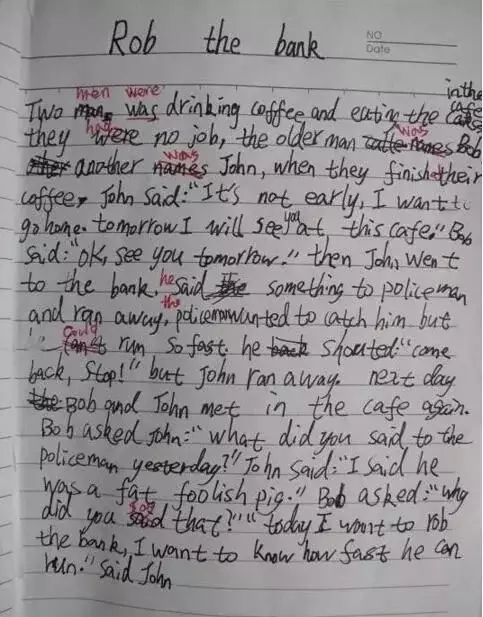 Rob the bank
NO
Date
men were
in the
Two man was drinking coffee and eating the cakes cafe
had was
they were no job, the older man names Bob
was
another names John, when they finish their
coffee, John said:"It's not early, I want to
you
go home. tomorrow I will see at this cafe." Bob
said:"OK, see you tomorrow." then John went
he
to the bank, said the something to policeman
the
and ran away, policeman wanted to catch him but
could
can't run so fast. he back shouted:"come
back, Stop!" but John ran away. next day
the Bob and John met in the cafe again.
Bob asked John:"what did you said to the
policeman yesterday?" John said:"I said he
was a fat foolish pig." Bob asked:"why
say
did you said that?" "today I want to rob
the bank, I want to know how fast he can
run." said John